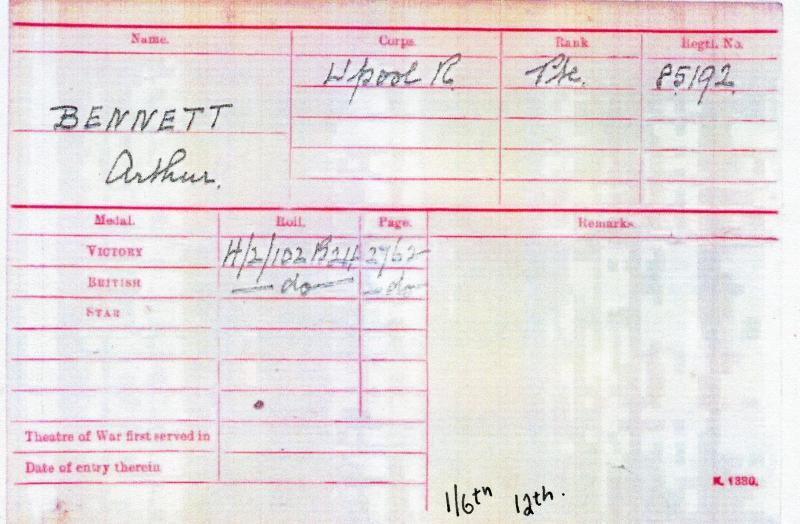 Name. Corps. Rank Regtl. No.
L'pool R. Pte. 85192
BENNETT
Arthur.
Medal. Roll. Page. Remarks.
VICTORY H/2/102 B24 2762
BRITISH — do — — do
STAR
Theatre of War first served in
Date of entry therein
K. 1380.
1/6th 12th.